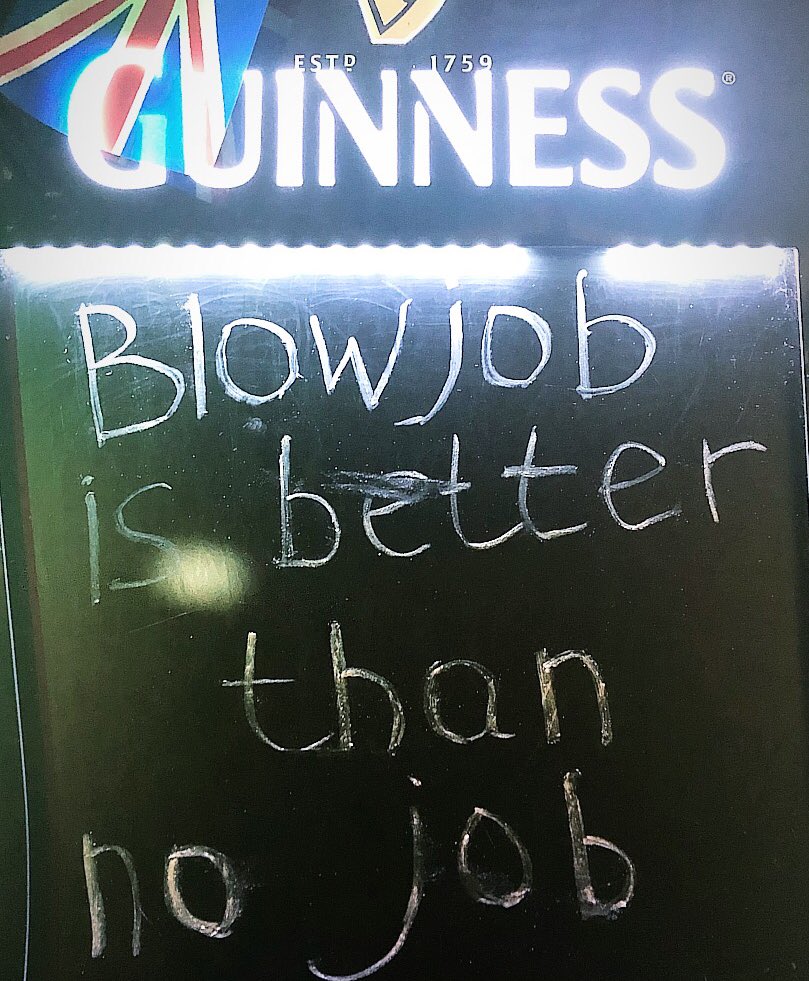 ESTD 1759
GUINNESS®
Blowjob
is better
than
no job